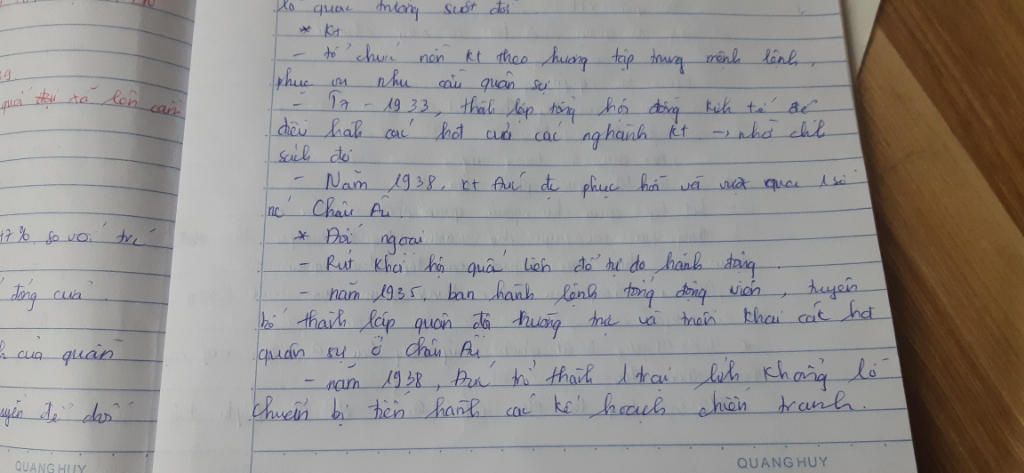 là quốc trưởng suốt đời
* KT
- tổ chức nền KT theo hướng tập trung mệnh lệnh,
phục vụ nhu cầu quân sự
- T7 - 1933, thành lập tổng hội đồng kinh tế để
điều hành các hđt của các nghành KT → nhờ chk
sách đó
- Năm 1938, KT Đức đc phục hồi và vượt qua 1 số
nc Châu Âu.
* Đối ngoại
- Rút khỏi hội quốc liên để tự do hành động
- năm 1935, ban hành lệnh tổng động viên, tuyên
bố thành lập quân đội thường trực và triển khai các hđ
quân sự ở Châu Âu
- năm 1938, Đức trở thành 1 trại lính khổng lồ
chuẩn bị tiến hành các kế hoạch chiến tranh.
QUANG HUY
39
xã lên cầm
17%, so với trc
động của
của quân
QUANG HUY